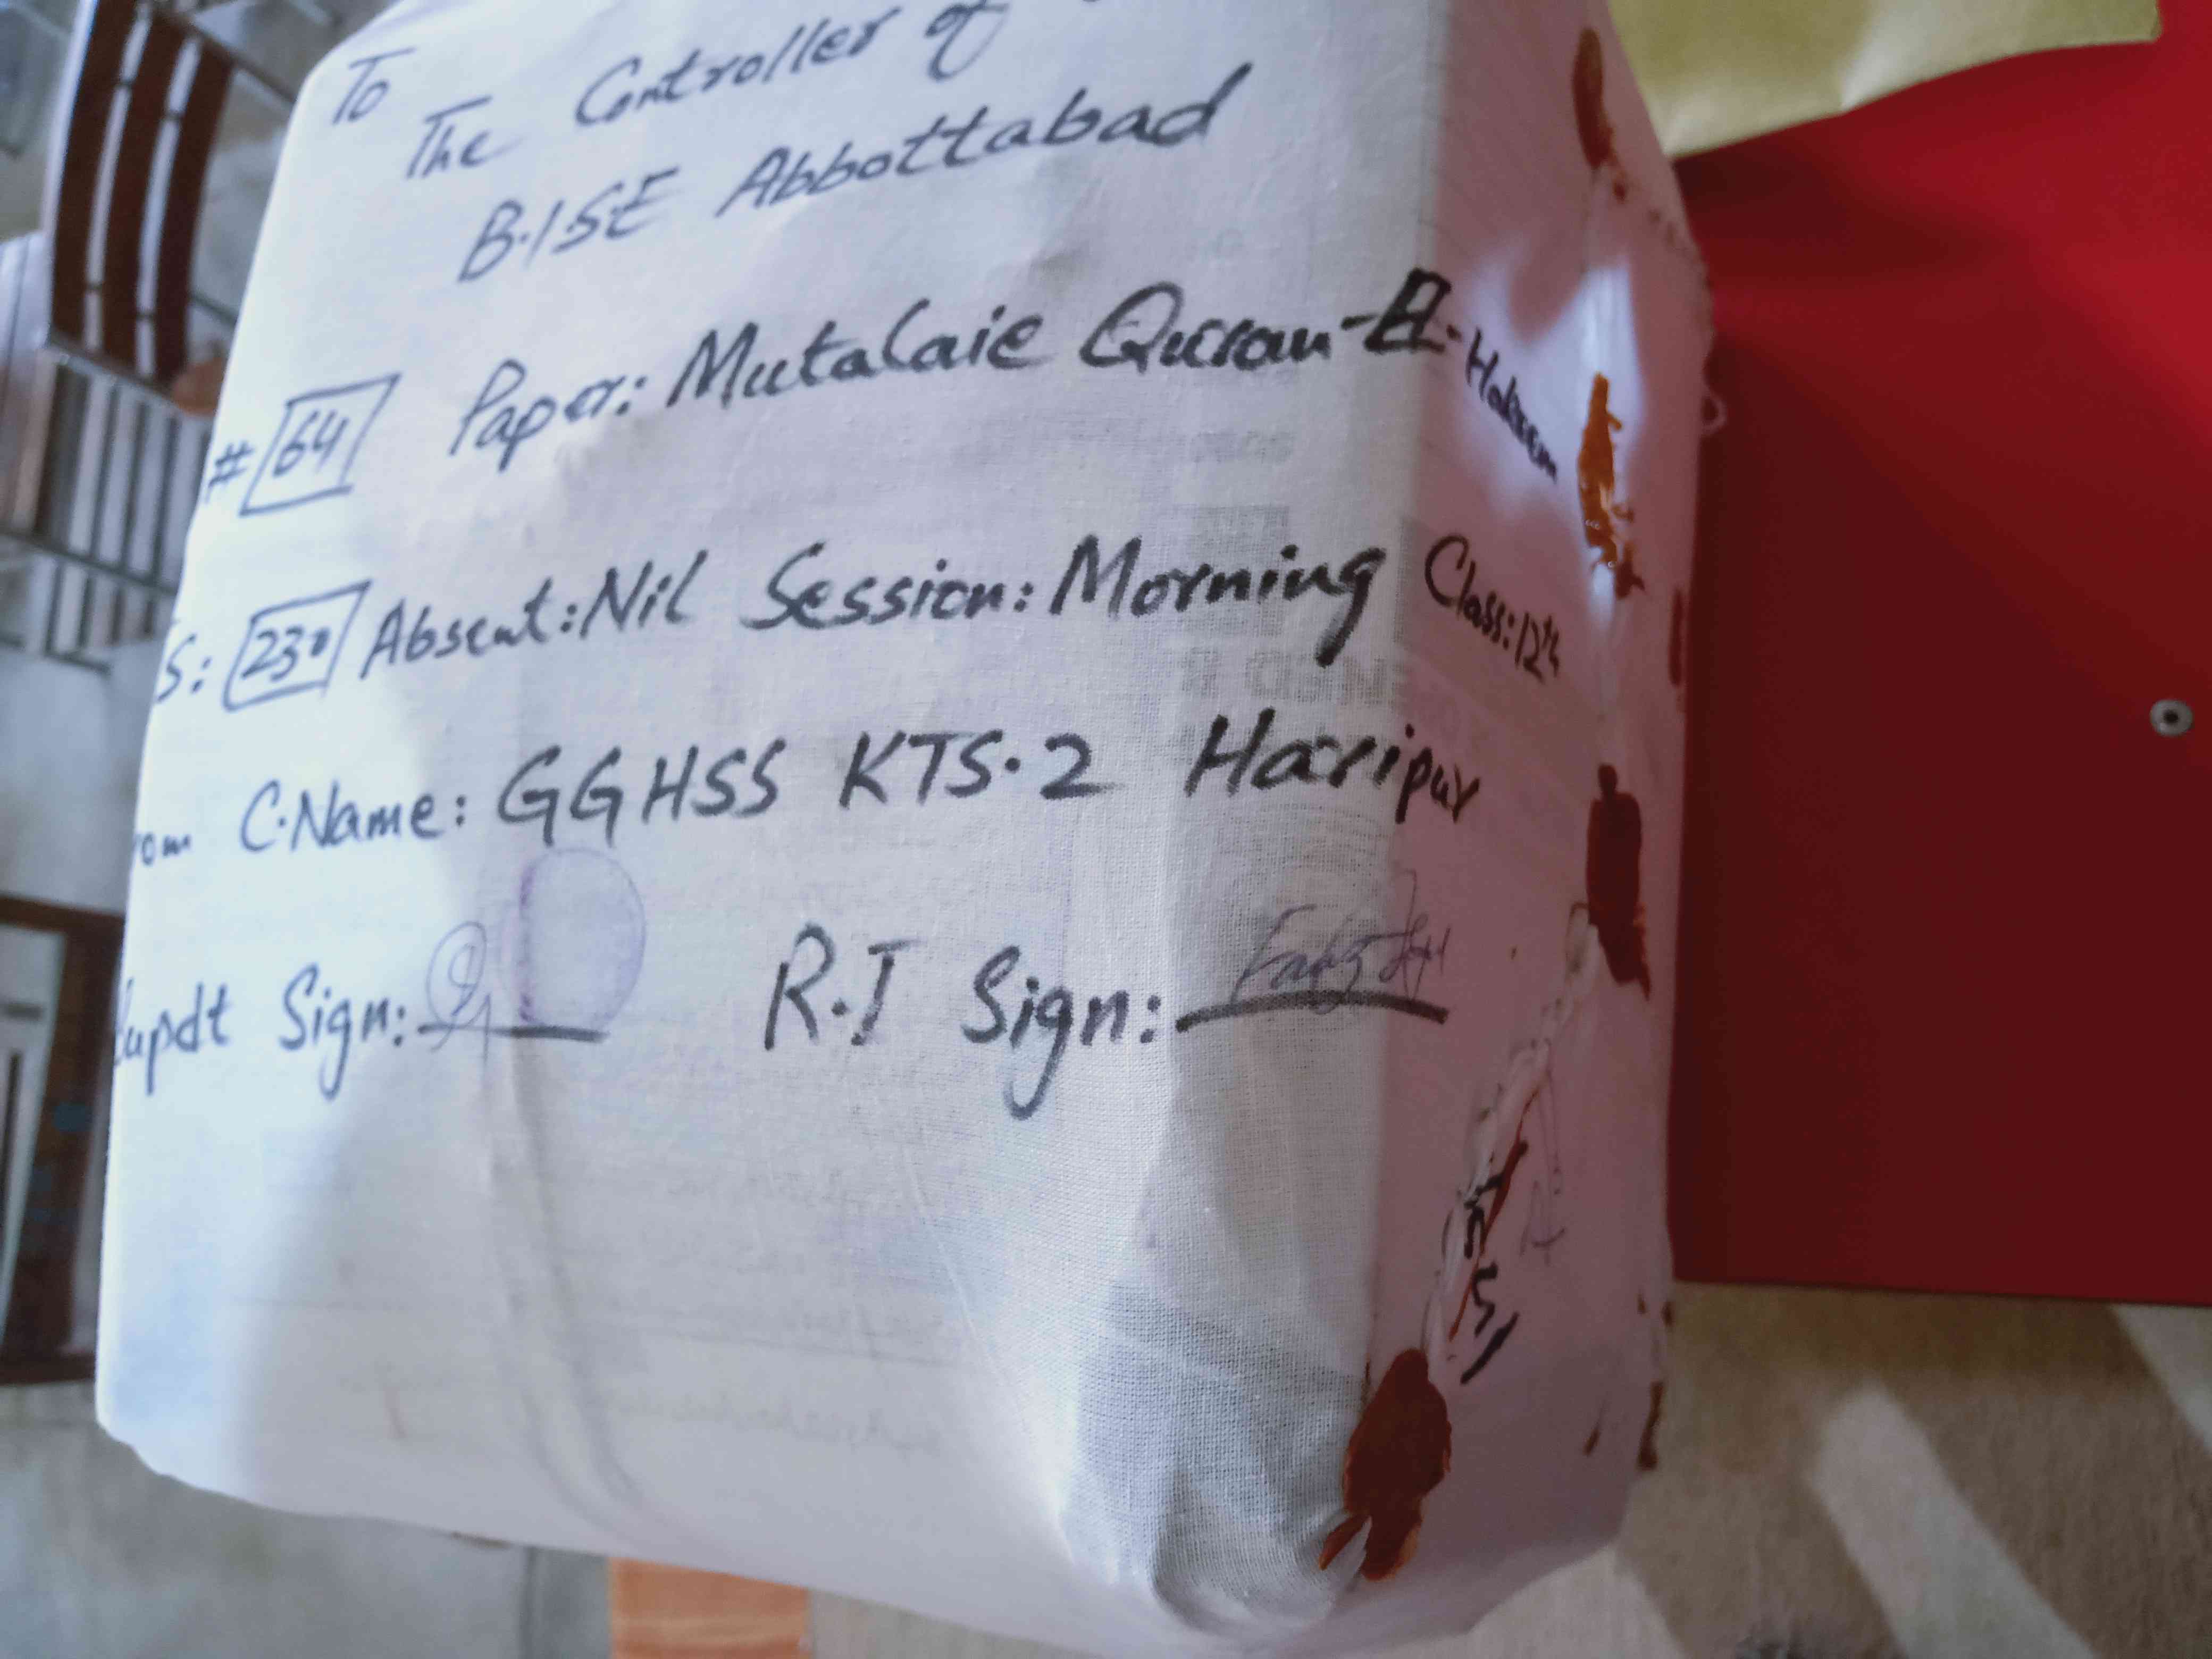 To
The Controller of
B.I.S.E Abbottabad
# 64 Paper: Mutalaie Quran-El-Hakeem
S: 230 Absent: Nil Session: Morning Class: 12th
rom C.Name: GGHSS KTS.2 Haripur
Supdt Sign: R.I Sign: